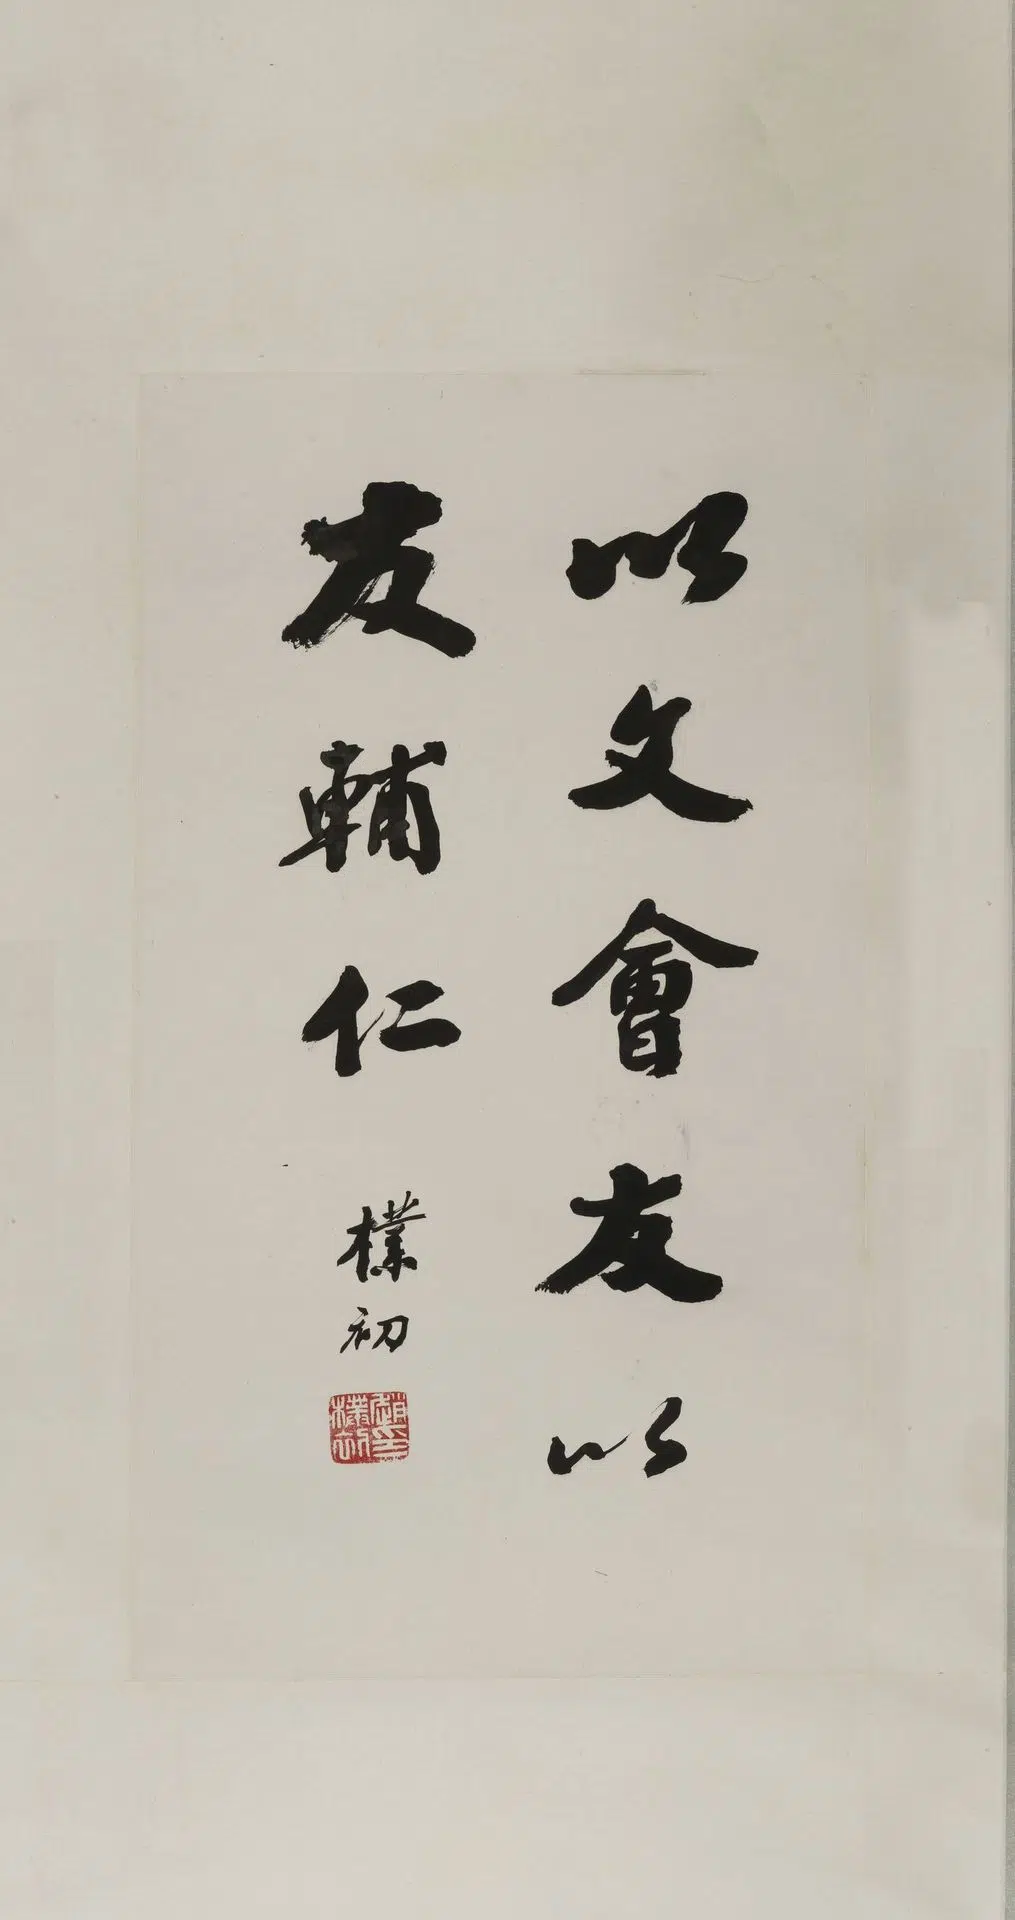 以文會友以
友輔仁
樸初
趙樸初印